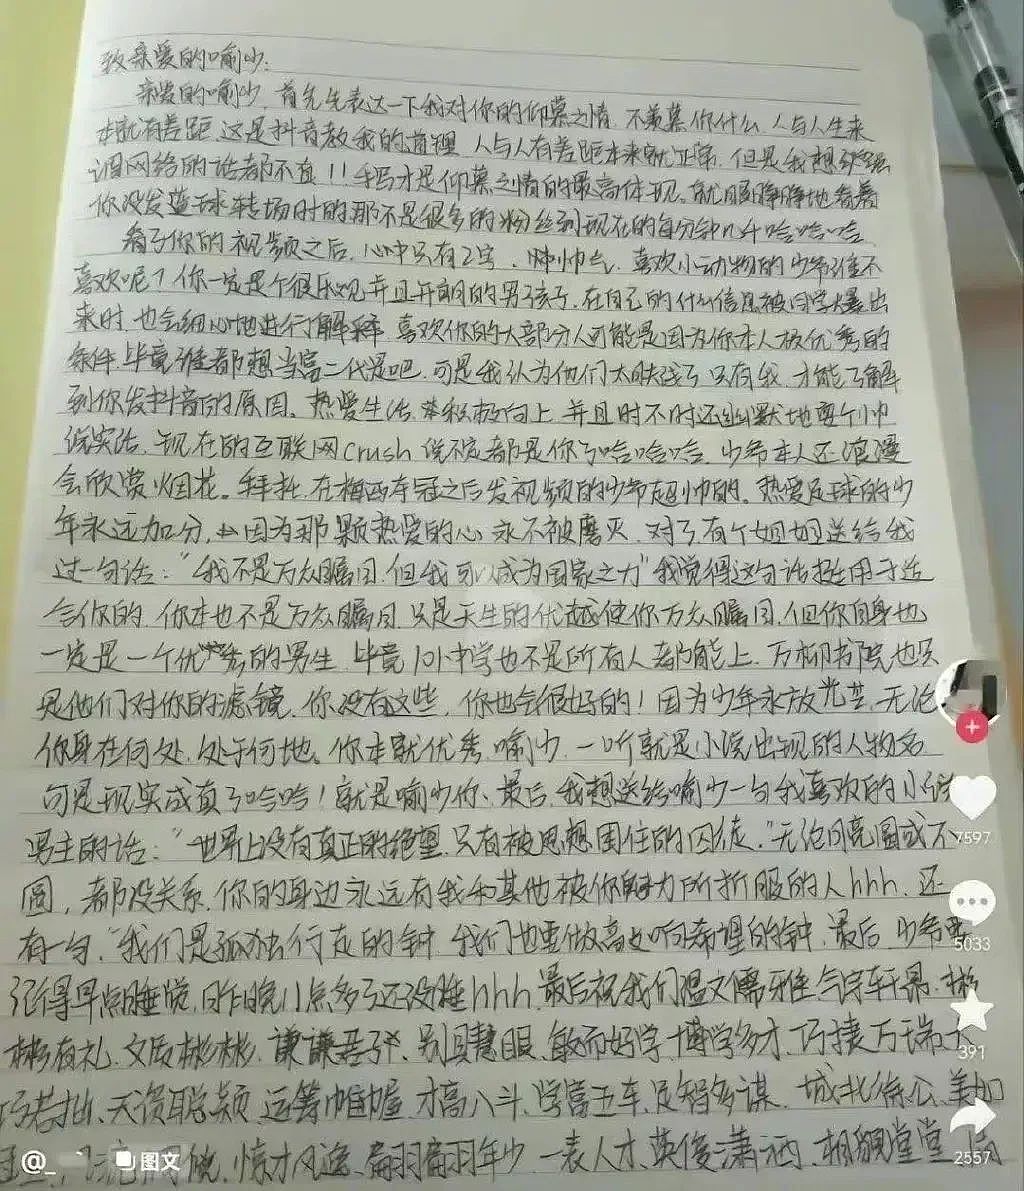 致亲爱的喻少:
亲爱的喻少,首先先表达一下我对你的仰慕之情,不羡慕你什么,人与人生来
本就有差距,这是抖音教我的道理,人与人有差距本来就正常,但是我想
网络的话都不值!!手写才是仰慕之情的最高体现。就眼睁睁地看着
你没发篮球转场时的那不是很多的粉丝到现在的每分钟几千哈哈哈
看了你的视频之后,心中只有2字,帅气,喜欢小动物的少爷谁不
喜欢呢?你一定是个很乐观并且开朗的男孩子,在自己的什么信息被同学爆出
来时,也会细心地进行解释,喜欢你的大部分人可能是因为你本人极优秀的
条件,毕竟谁都想当富二代是吧,可是我认为他们太肤浅了,只有我,才能了解
到你发抖音的原因。热爱生活,积极向上,并且时不时还幽默地耍个小帅
说实话,现在的互联网crush说不定都是你了哈哈哈,少爷本人还浪漫
会欣赏烟花。拜托,在梅西夺冠之后发视频的少爷超帅的。热爱足球的少
年永远加分,因为那颗热爱的心永不被磨灭,对了有个姐姐送给我
过一句话:“我不是万众瞩目,但我可以成为国家之力”我觉得这句话挺用于适
合你的,你本也不是万众瞩目,只是天生的优越使你万众瞩目,但你自身也
一定是一个优秀的男生,毕竟101中学也不是所有人都能上,万柳书院也只
是他们对你的滤镜,你没有这些,你也会很好的!因为少年永放光芒,无论
你身在何处,处于何地。你本就优秀,喻少,一听就是小说出现的人物名
可是现实成真了哈哈!就是喻少你、最后,我想送给喻少一句我喜欢的小说
男主的话:“世界上没有真正的绝望,只有被思想困住的囚徒。”无论月亮圆或不
圆,都没关系,你的身边永远有我和其他被你魅力所折服的人hhh,还
有一句,“我们是孤独行走的钟,我们也要做高处响希望的钟,最后,少爷要
记得早点睡觉,昨晚11点多了还没睡hhh,最后祝我们温文儒雅、气宇轩昂、彬
彬有礼、文质彬彬、谦谦君子、别具慧眼、敏而好学、博学多才、巧捷万端、大
巧若拙、天资聪颖、运筹帷幄、才高八斗、学富五车、足智多谋、城北徐公、美如
惊才风逸、翩翩年少、一表人才、英俊潇洒、相貌堂堂
7597
5033
391
2557
@_
图文